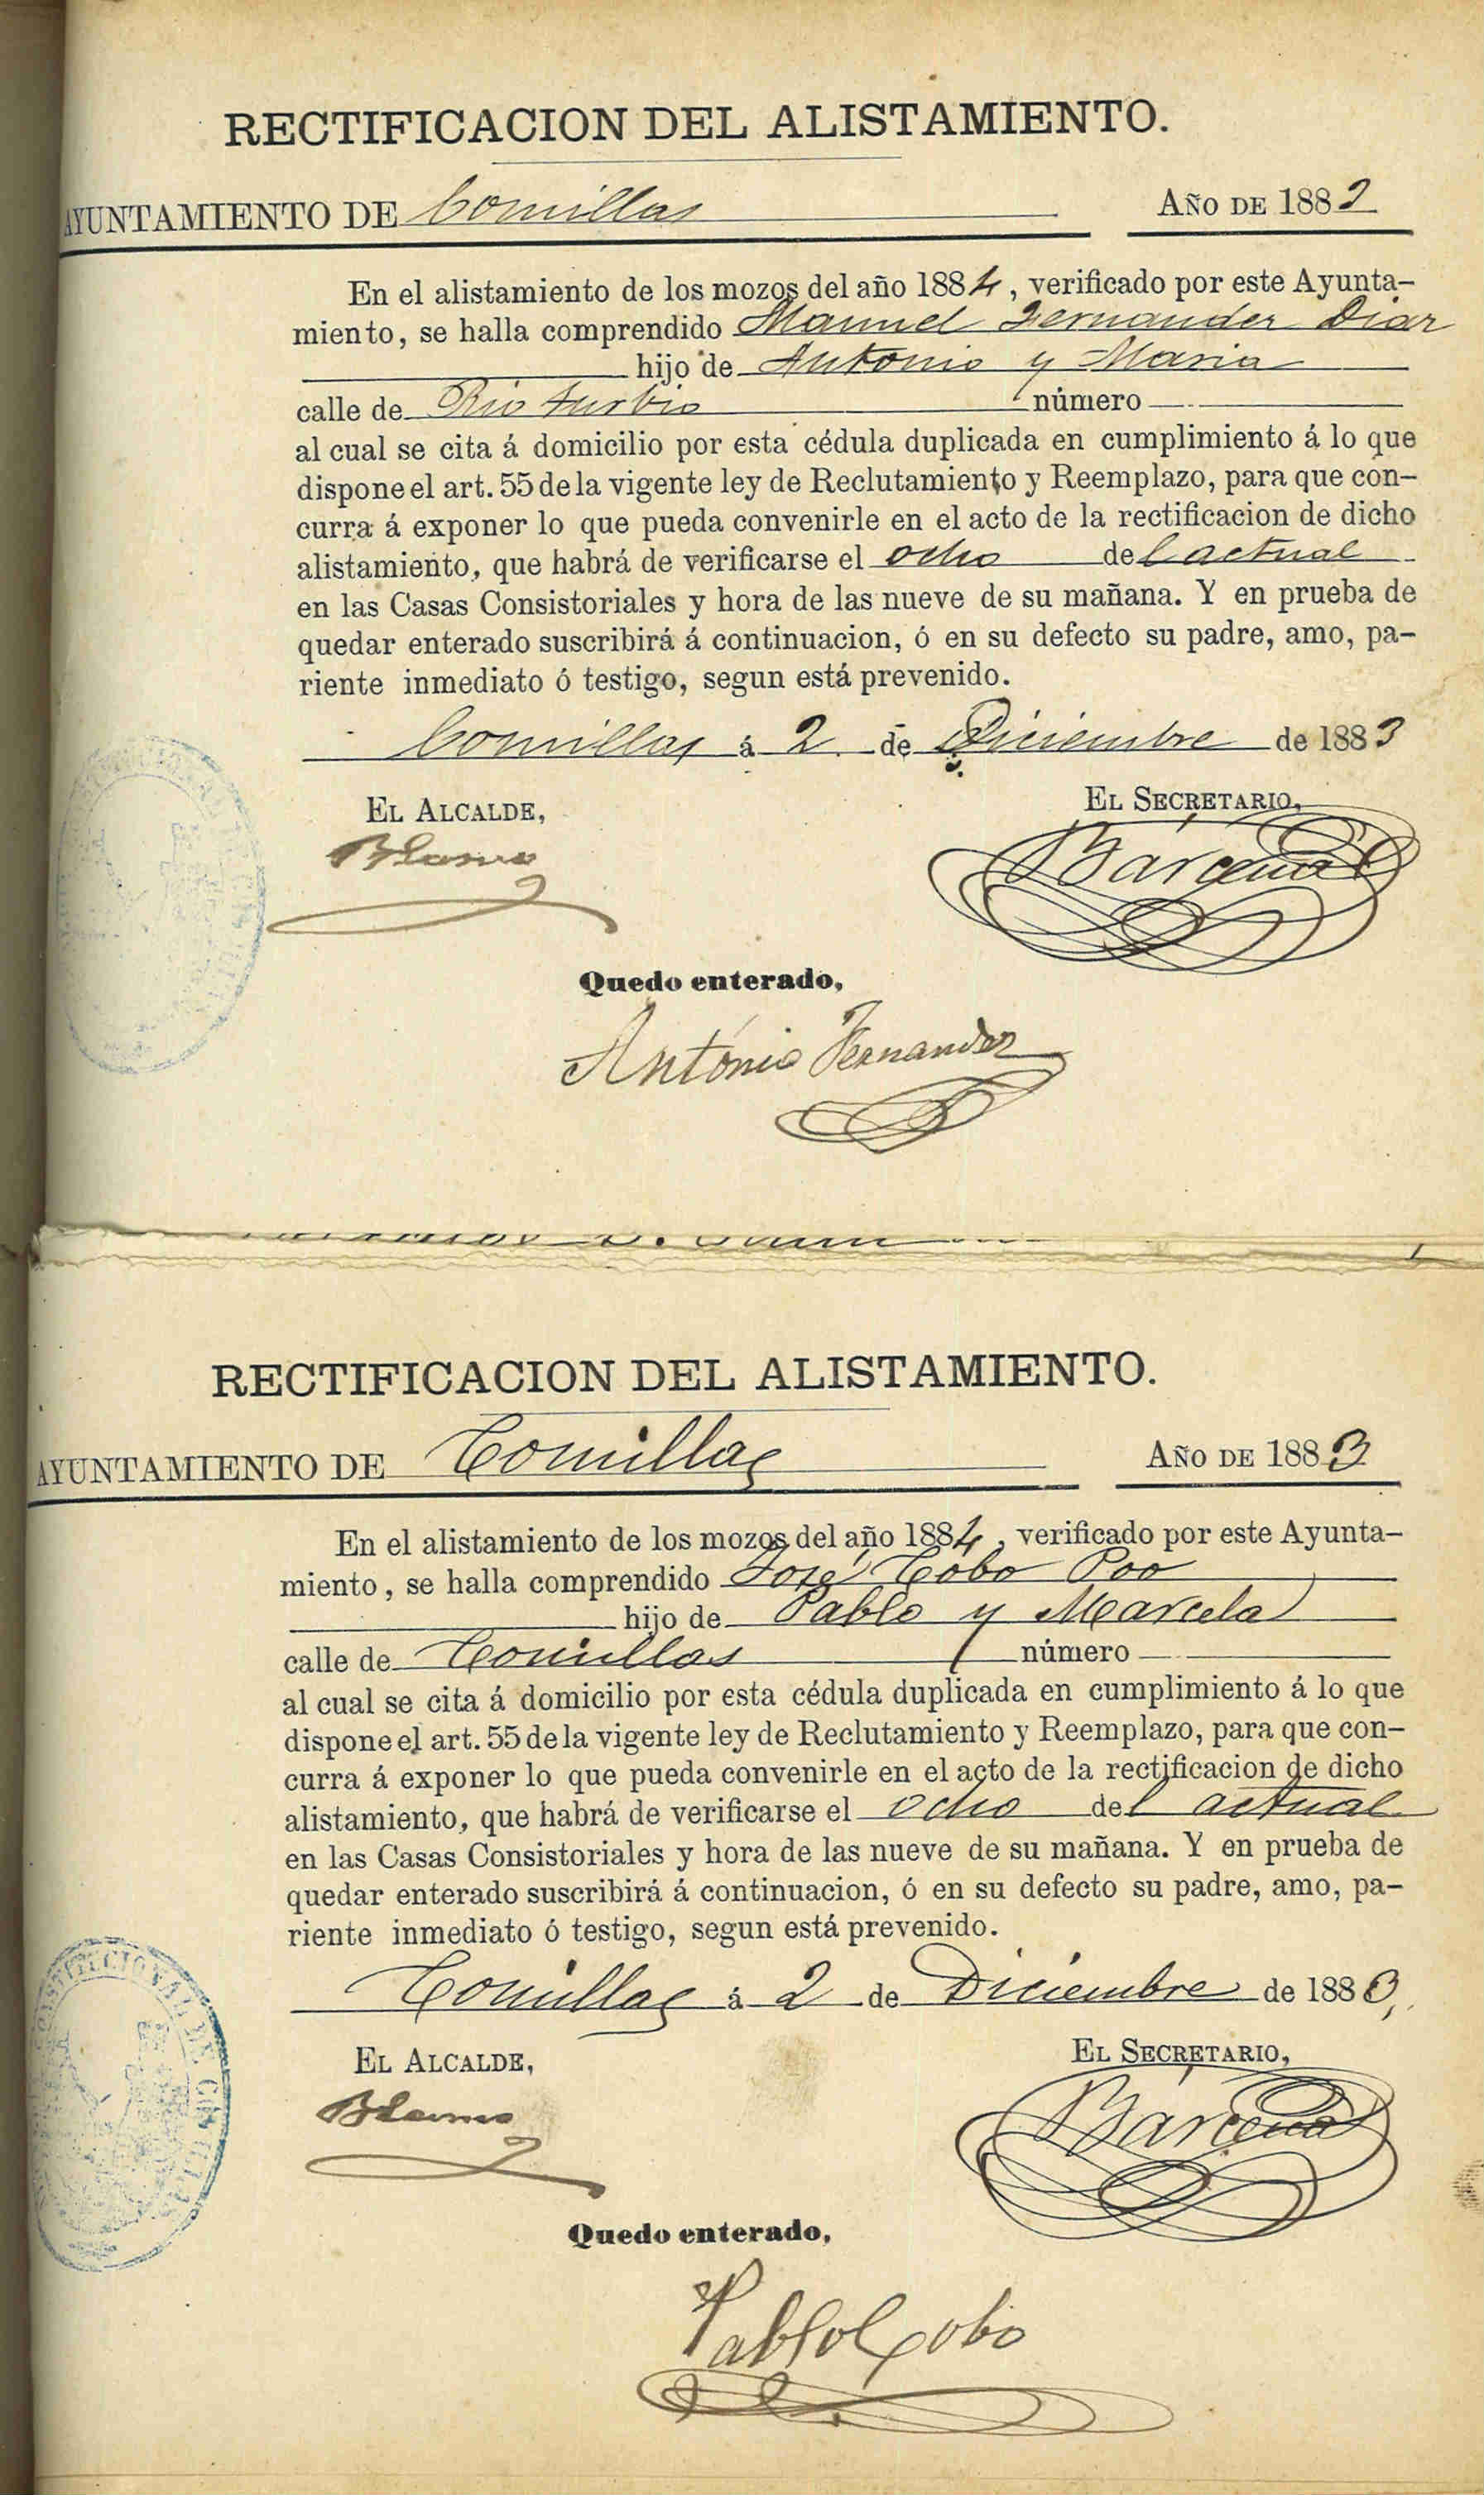 RECTIFICACION DEL ALISTAMIENTO.
AYUNTAMIENTO DE Comillas AÑO DE 1882
En el alistamiento de los mozos del año 1884, verificado por este Ayunta-
miento, se halla comprendido Manuel Fernandez Diaz
hijo de Antonio y Maria
calle de Rio turbio número
al cual se cita á domicilio por esta cédula duplicada en cumplimiento á lo que
dispone el art. 55 de la vigente ley de Reclutamiento y Reemplazo, para que con-
curra á exponer lo que pueda convenirle en el acto de la rectificacion de dicho
alistamiento, que habrá de verificarse el ocho del actual
en las Casas Consistoriales y hora de las nueve de su mañana. Y en prueba de
quedar enterado suscribirá á continuacion, ó en su defecto su padre, amo, pa-
riente inmediato ó testigo, segun está prevenido.
Comillas á 2 de Diciembre de 1883
EL ALCALDE, EL SECRETARIO,
Bárcena
Quedo enterado,
Antonio Fernandez
RECTIFICACION DEL ALISTAMIENTO.
AYUNTAMIENTO DE Comillas AÑO DE 1883
En el alistamiento de los mozos del año 1884, verificado por este Ayunta-
miento, se halla comprendido José Cobo Poo
hijo de Pablo y Marcela
calle de Comillas número
al cual se cita á domicilio por esta cédula duplicada en cumplimiento á lo que
dispone el art. 55 de la vigente ley de Reclutamiento y Reemplazo, para que con-
curra á exponer lo que pueda convenirle en el acto de la rectificacion de dicho
alistamiento, que habrá de verificarse el ocho del actual
en las Casas Consistoriales y hora de las nueve de su mañana. Y en prueba de
quedar enterado suscribirá á continuacion, ó en su defecto su padre, amo, pa-
riente inmediato ó testigo, segun está prevenido.
Comillas á 2 de Diciembre de 1883,
EL ALCALDE, EL SECRETARIO,
Bárcena
Quedo enterado,
Pablo Cobo